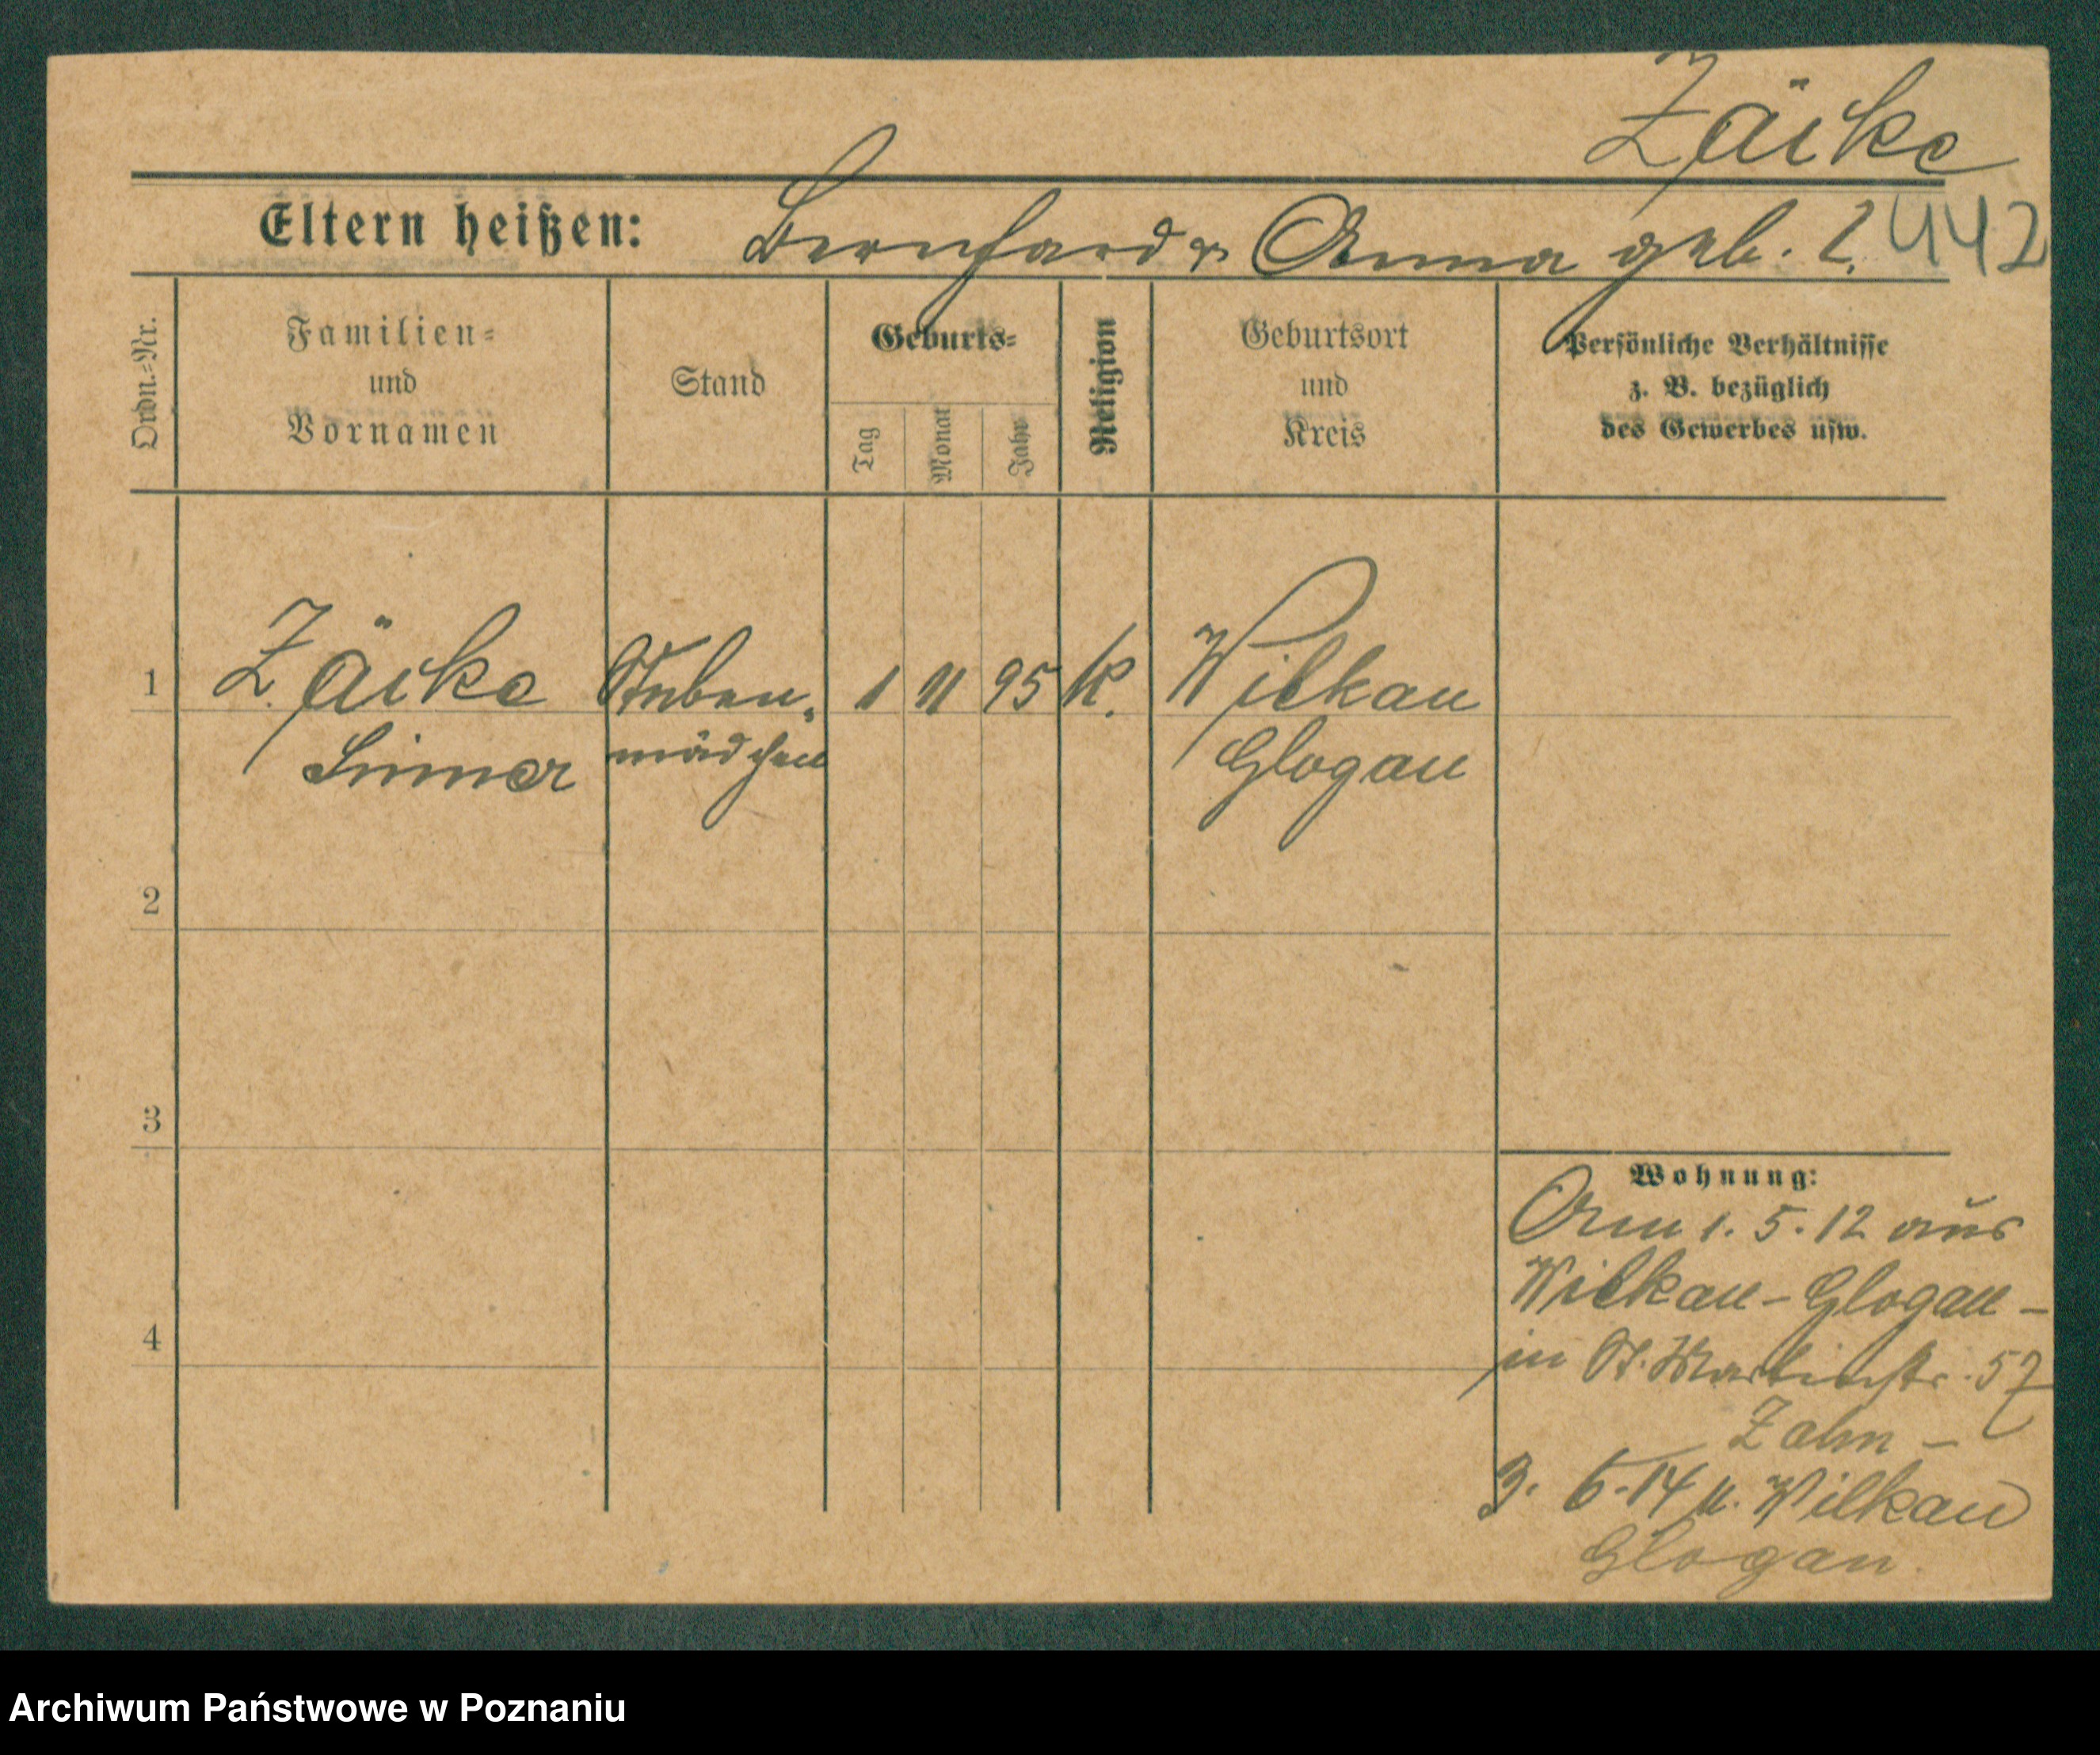 Zäike
Eltern heißen: Bernhard & Anna geb. 442
Ordn.=Nr.
Familien=
und
Vornamen
Stand
Geburts=
Tag
Monat
Jahr
Religion
Geburtsort
und
Kreis
Persönliche Verhältnisse
z. B. bezüglich
des Gewerbes usw.
1 Zäike Stuben= 1 11 95 K. Wilkau
mädchen Glogau
2
3
4
Wohnung:
1. 5. 12 aus
Wilkau - Glogau -
in St. Martinstr. 57
Zahn -
3. 6. 14 n. Wilkau
Glogau.
Archiwum Państwowe w Poznaniu